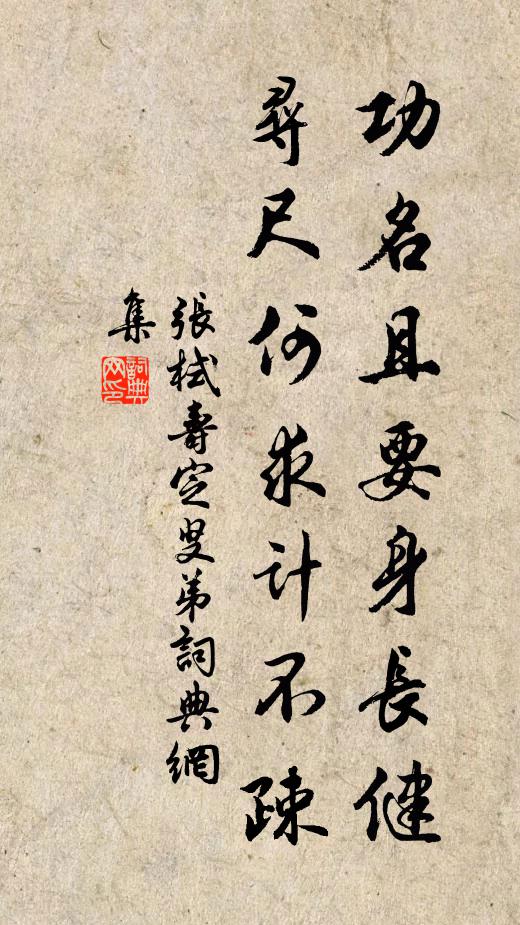 功名且要身長健
尋尺何求計不疎
張栻壽定叟弟詞典網
集
詞典網印